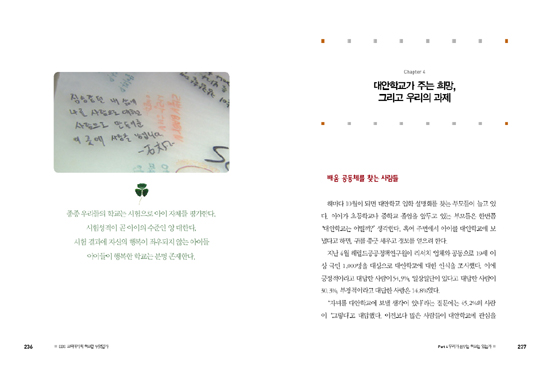 종종 우리들의 학교는 시험으로 아이 자체를 평가한다.
시험성적이 곧 아이의 수준인 양 대한다.
시험 결과에 자신의 행복이 좌우되지 않는 아이들
아이들이 행복한 학교는 분명 존재한다.
236
Chapter 4
대안학교가 주는 희망,
그리고 우리의 과제
배움 공동체를 찾는 사람들
해마다 10월이 되면 대안학교 입학 설명회를 찾는 부모들이 늘고 있
다. 아이가 초등학교나 중학교 졸업을 앞두고 있는 부모들은 한번쯤
'대안학교는 어떨까?' 생각한다. 혹여 주변에서 아이를 대안학교에 보
냈다고 하면, 귀를 쫑긋 세우고 정보를 얻으려 한다.
지난 4월 헤럴드공공정책연구원이 리서치 업체와 공동으로 19세 이
상 국민 1,000명을 대상으로 대안학교에 대한 인식을 조사했다. 이에
긍정적이라고 대답한 사람이 54.9%, 일장일단이 있다고 대답한 사람이
30.3%, 부정적이라고 대답한 사람은 14.8%였다.
"자녀를 대안학교에 보낼 생각이 있나"라는 질문에는 45.2%의 사람
이 '그렇다'고 대답했다. 이전보다 많은 사람들이 대안학교에 관심을
237